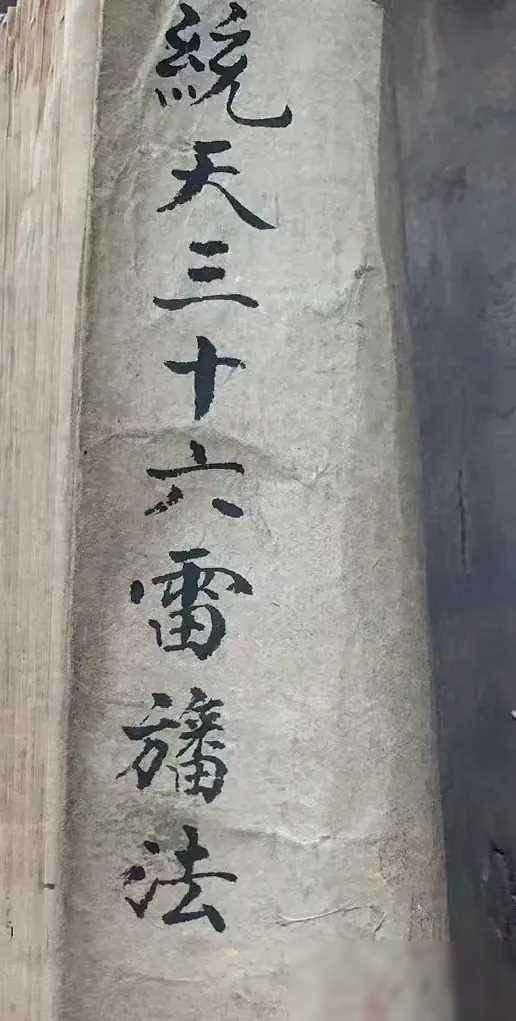 統天三十六雷旛法